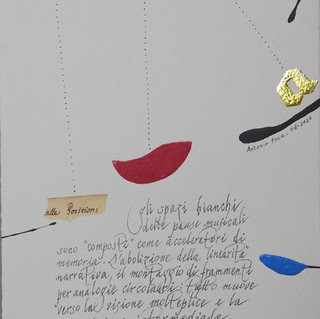 Antonio
alle Positioni
gli spazi bianchi,
delle pause musicali
sono "composti" come acceleratori di
memoria. L'abolizione della linearità
narrativa, il montaggio di frammenti
per analogie circolanti: tutto muove
verso la visione molteplice e la
intermediale